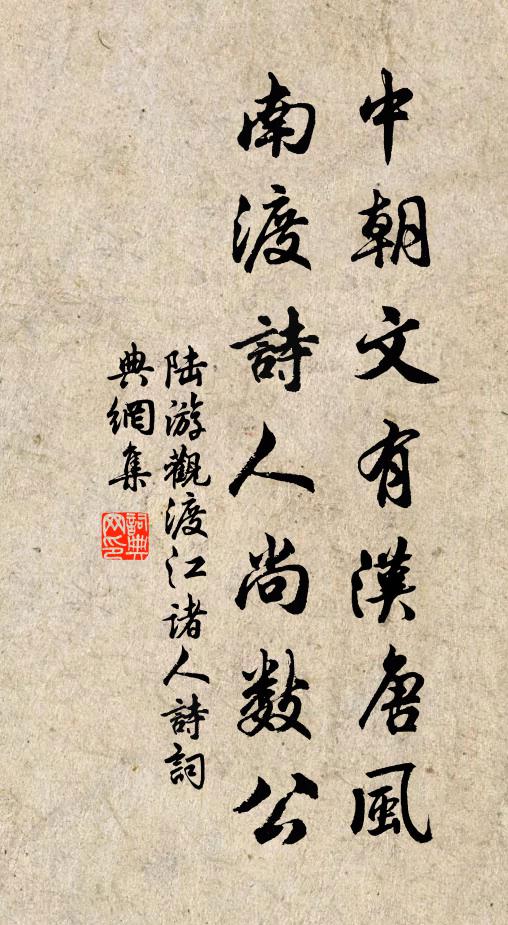 中朝文有漢唐風
南渡詩人尚數公
陆游觀渡江诸人詩詞
典網集
詞典網印